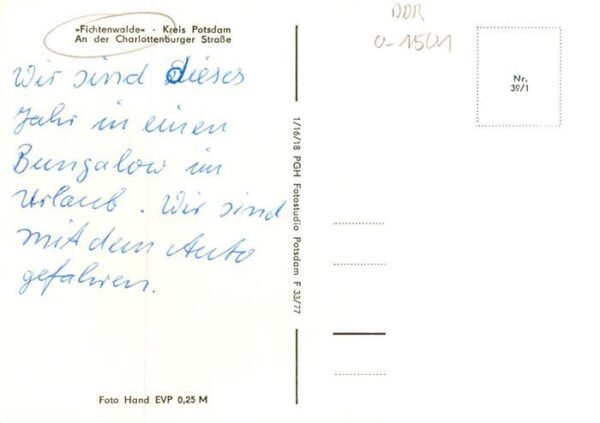 »Fichtenwalde« · Kreis Potsdam
An der Charlottenburger Straße
DDR
O-1501
Wir sind dieses
Jahr in einen
Bungalow im
Urlaub. Wir sind
mit dem Auto
gefahren.
1/16/18 PGH Fotostudio Potsdam F 33/77
Nr.
39/1
Foto Hand EVP 0,25 M